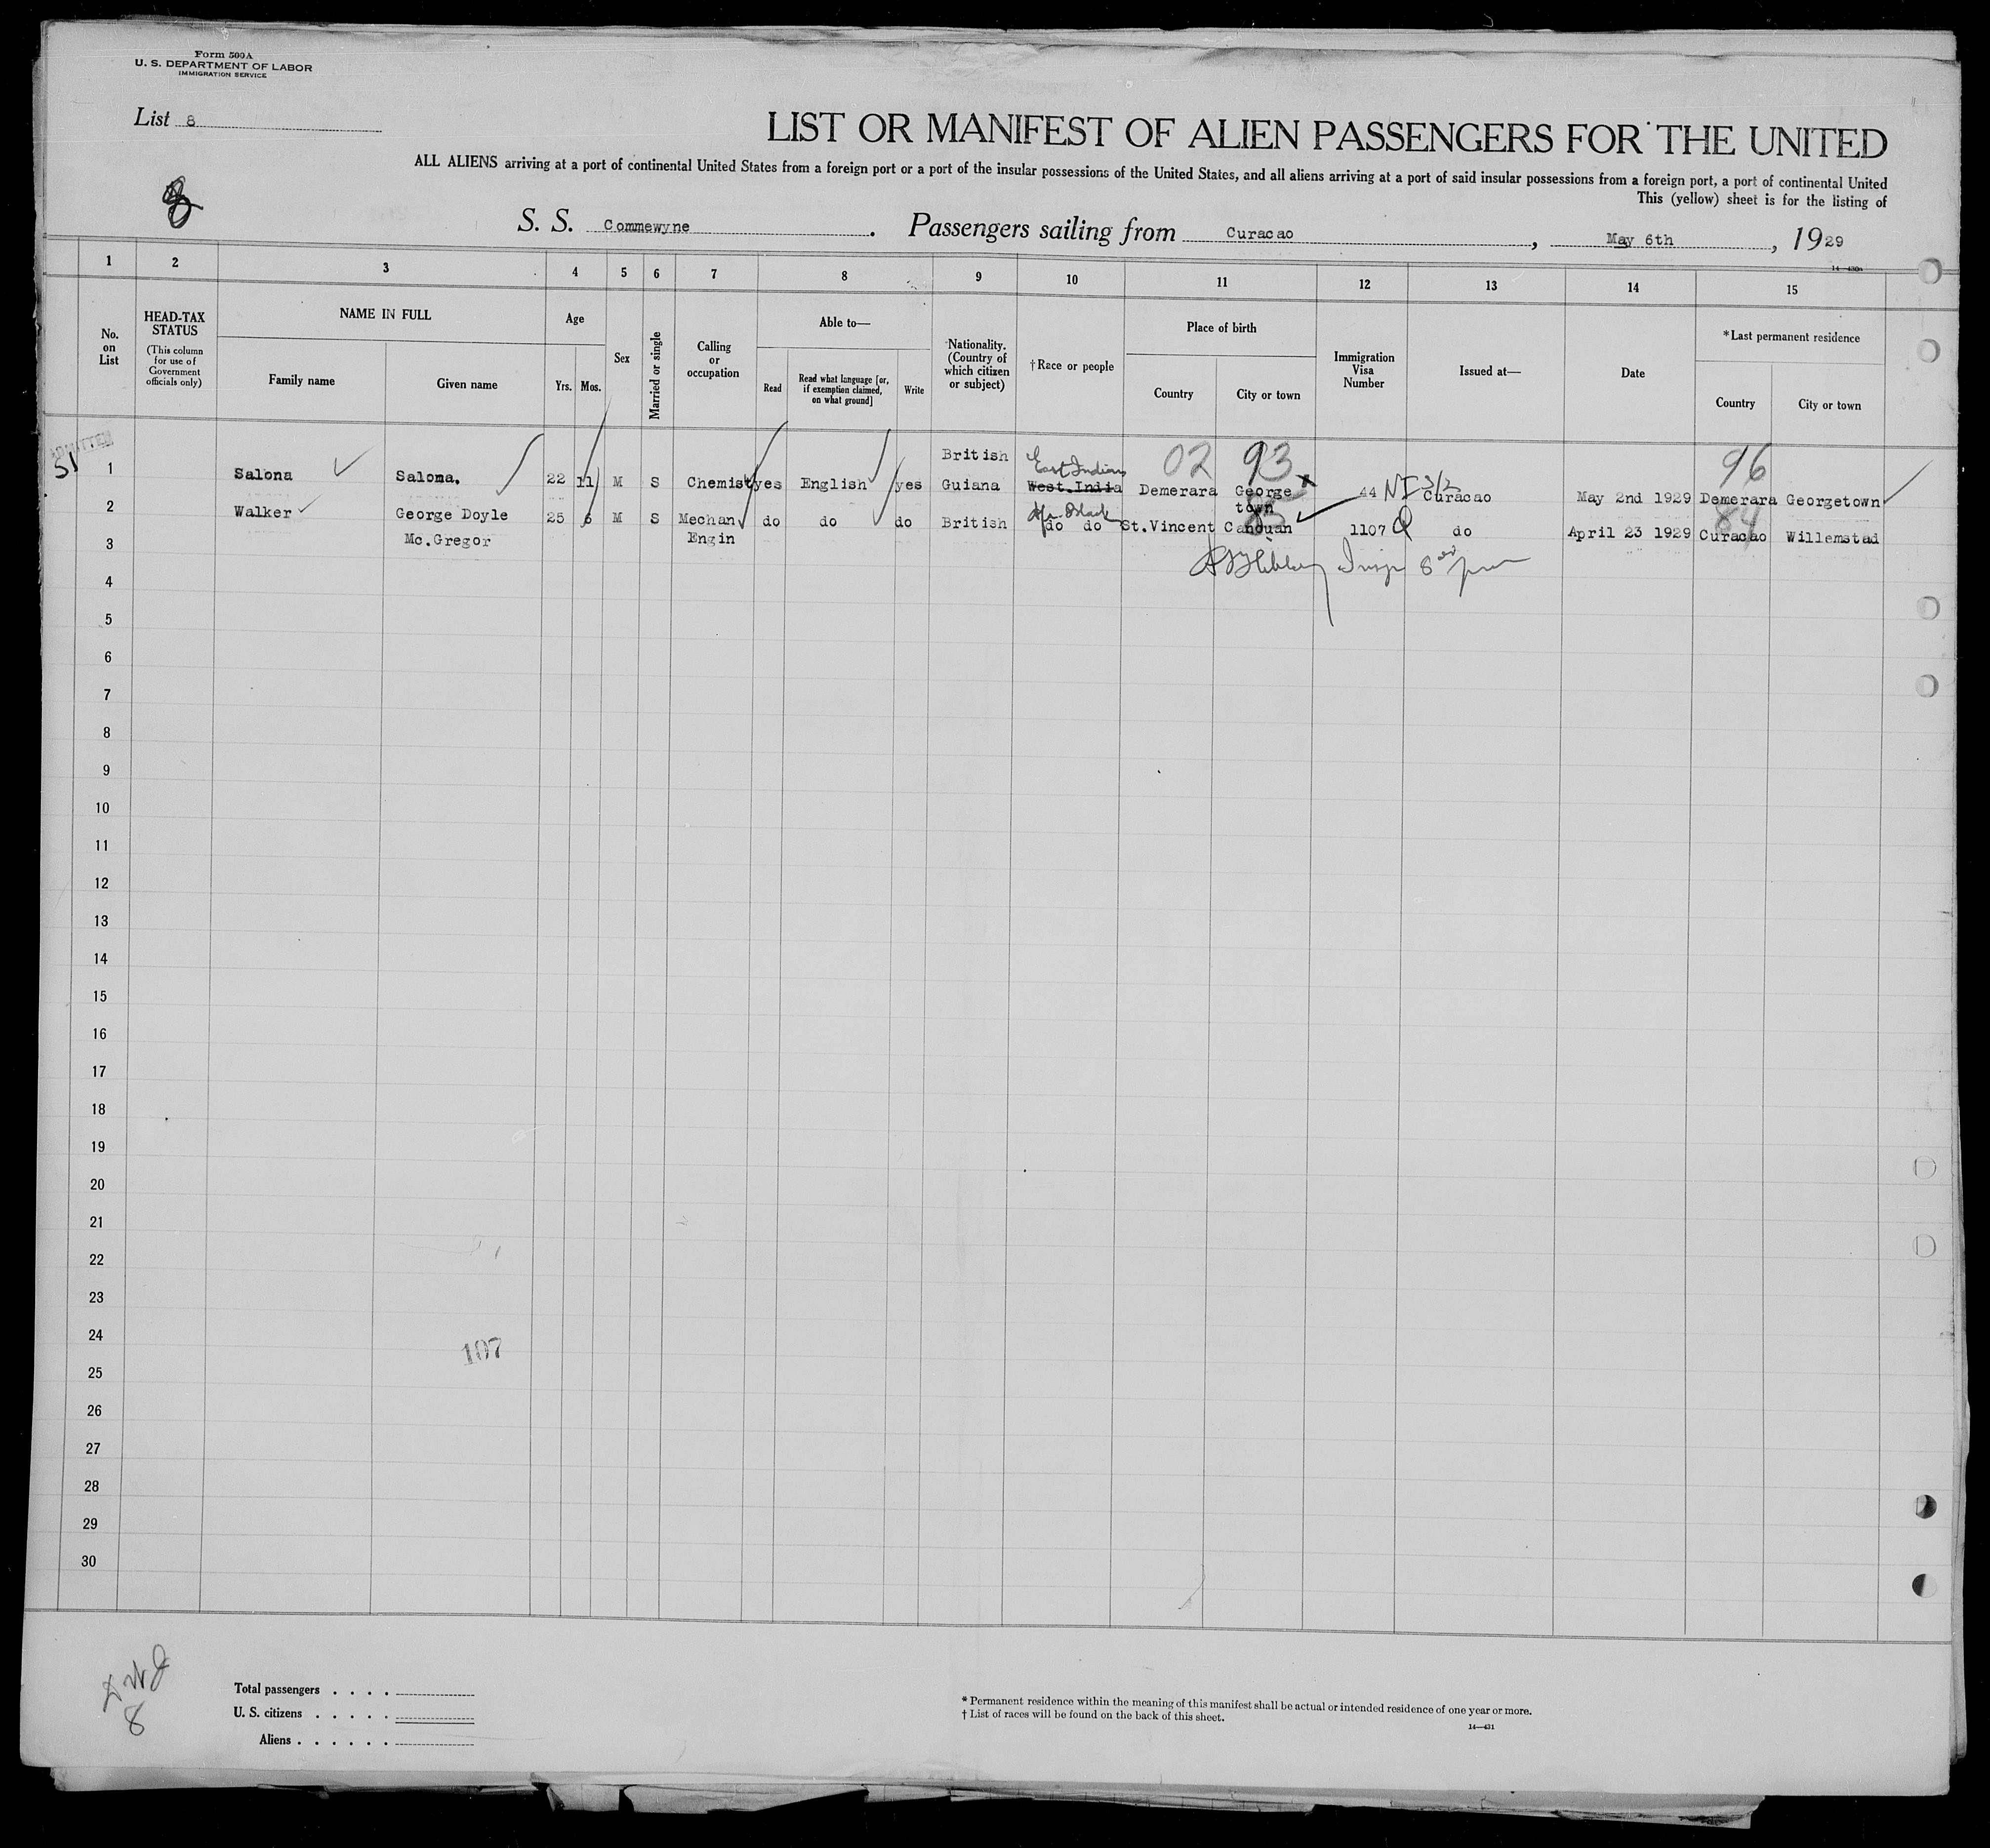 Form 500A
U. S. DEPARTMENT OF LABOR
IMMIGRATION SERVICE
List 8
LIST OR MANIFEST OF ALIEN PASSENGERS FOR THE UNITED
ALL ALIENS arriving at a port of continental United States from a foreign port or a port of the insular possessions of the United States, and all aliens arriving at a port of said insular possessions from a foreign port, a port of continental United
This (yellow) sheet is for the listing of
8
S. S. Commewyne. Passengers sailing from Curacao, May 6th, 1929
14—430a
1 2 3 4 5 6 7 8 9 10 11 12 13 14 15
No. on List
HEAD-TAX STATUS
(This column for use of Government officials only)
NAME IN FULL
Family name
Given name
Age
Yrs. Mos.
Sex
Married or single
Calling or occupation
Able to—
Read
Read what language [or, if exemption claimed, on what ground]
Write
Nationality. (Country of which citizen or subject)
†Race or people
Place of birth
Country
City or town
Immigration Visa Number
Issued at—
Date
*Last permanent residence
Country
City or town
ADMITTED
51
02 93 96
1 Salona Saloma. 22 11 M S Chemist yes English yes British Guiana East Indian West.India Demerara George town 44 NI 3/2 Curacao May 2nd 1929 Demerara Georgetown
85 84
2 Walker George Doyle Mc.Gregor 25 6 M S Mechan Engin do do do British Af. Black do do St.Vincent Canouan 1107 Q do April 23 1929 Curacao Willemstad
3
4
5
6
7
8
9
10
11
12
13
14
15
16
17
18
19
20
21
22
23
24
107
25
26
27
28
29
30
8
Total passengers . . . .
U. S. citizens . . . . .
Aliens . . . . . .
* Permanent residence within the meaning of this manifest shall be actual or intended residence of one year or more.
† List of races will be found on the back of this sheet.
14—431